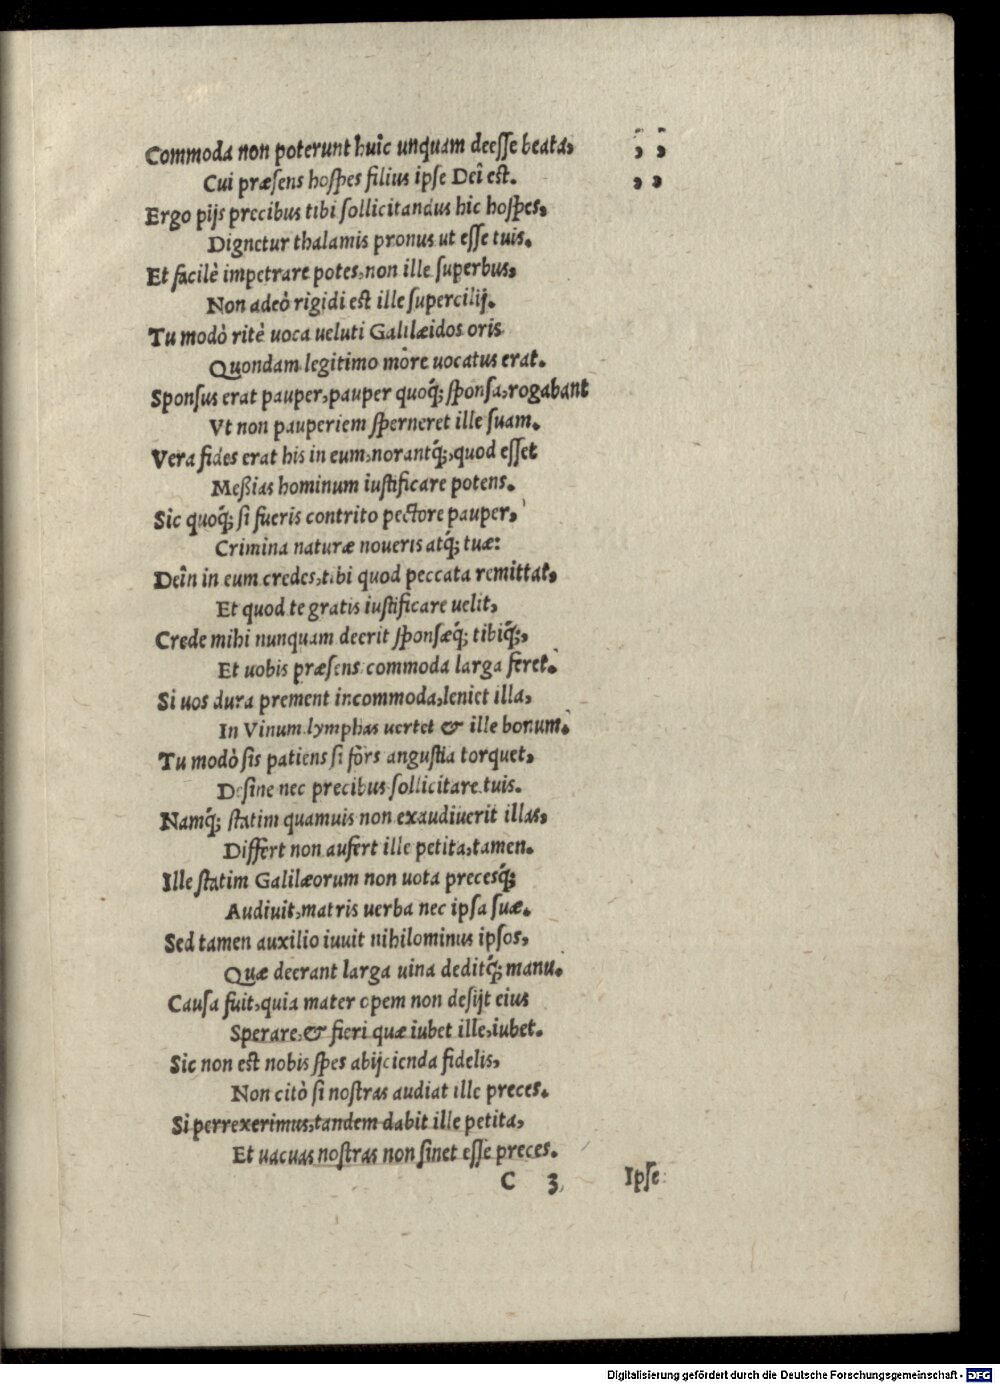 Commoda non poterunt huic unquam deesse beata, , ,
Cui præsens hospes filius ipse Dei est. , ,
Ergo pijs precibus tibi sollicitandus hic hospes,
Dignetur thalamis pronus ut esse tuis.
Et facilè impetrare potes, non ille superbus,
Non adeò rigidi est ille supercilij.
Tu modò ritè uoca ueluti Galilæidos oris
Quondam legitimo more uocatus erat.
Sponsus erat pauper, pauper quoq́; sponsa, rogabant
Vt non pauperiem sperneret ille suam.
Vera fides erat his in eum, norantq́;, quod esset
Meßias hominum iustificare potens.
Sic quoq́; si fueris contrito pectore pauper,
Crimina naturæ noueris atq́; tuæ:
Deîn in eum credes, tibi quod peccata remittat,
Et quod te gratis iustificare uelit,
Crede mihi nunquam deerit sponsæq́; tibiq́;,
Et uobis præsens commoda larga feret.
Si uos dura prement incommoda, leniet illa,
In Vinum lymphas uertet & ille bonum.
Tu modò sis patiens si fors angustia torquet,
Desine nec precibus sollicitare tuis.
Namq́; statim quamuis non exaudiuerit illas,
Differt non aufert ille petita, tamen.
Ille statim Galilæorum non uota precesq́;
Audiuit, matris uerba nec ipsa suæ.
Sed tamen auxilio iuuit nihilominus ipsos,
Quæ deerant larga uina deditq́; manu.
Causa fuit, quia mater opem non desijt eius
Sperare, & fieri quæ iubet ille, iubet.
Sic non est nobis spes abijcienda fidelis,
Non citò si nostras audiat ille preces.
Si perrexerimus, tandem dabit ille petita,
Et uacuas nostras non sinet esse preces.
C 3 Ipse
Digitalisierung gefördert durch die Deutsche Forschungsgemeinschaft - DFG